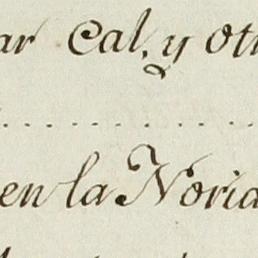 ar Cal, y otr
en la Noria